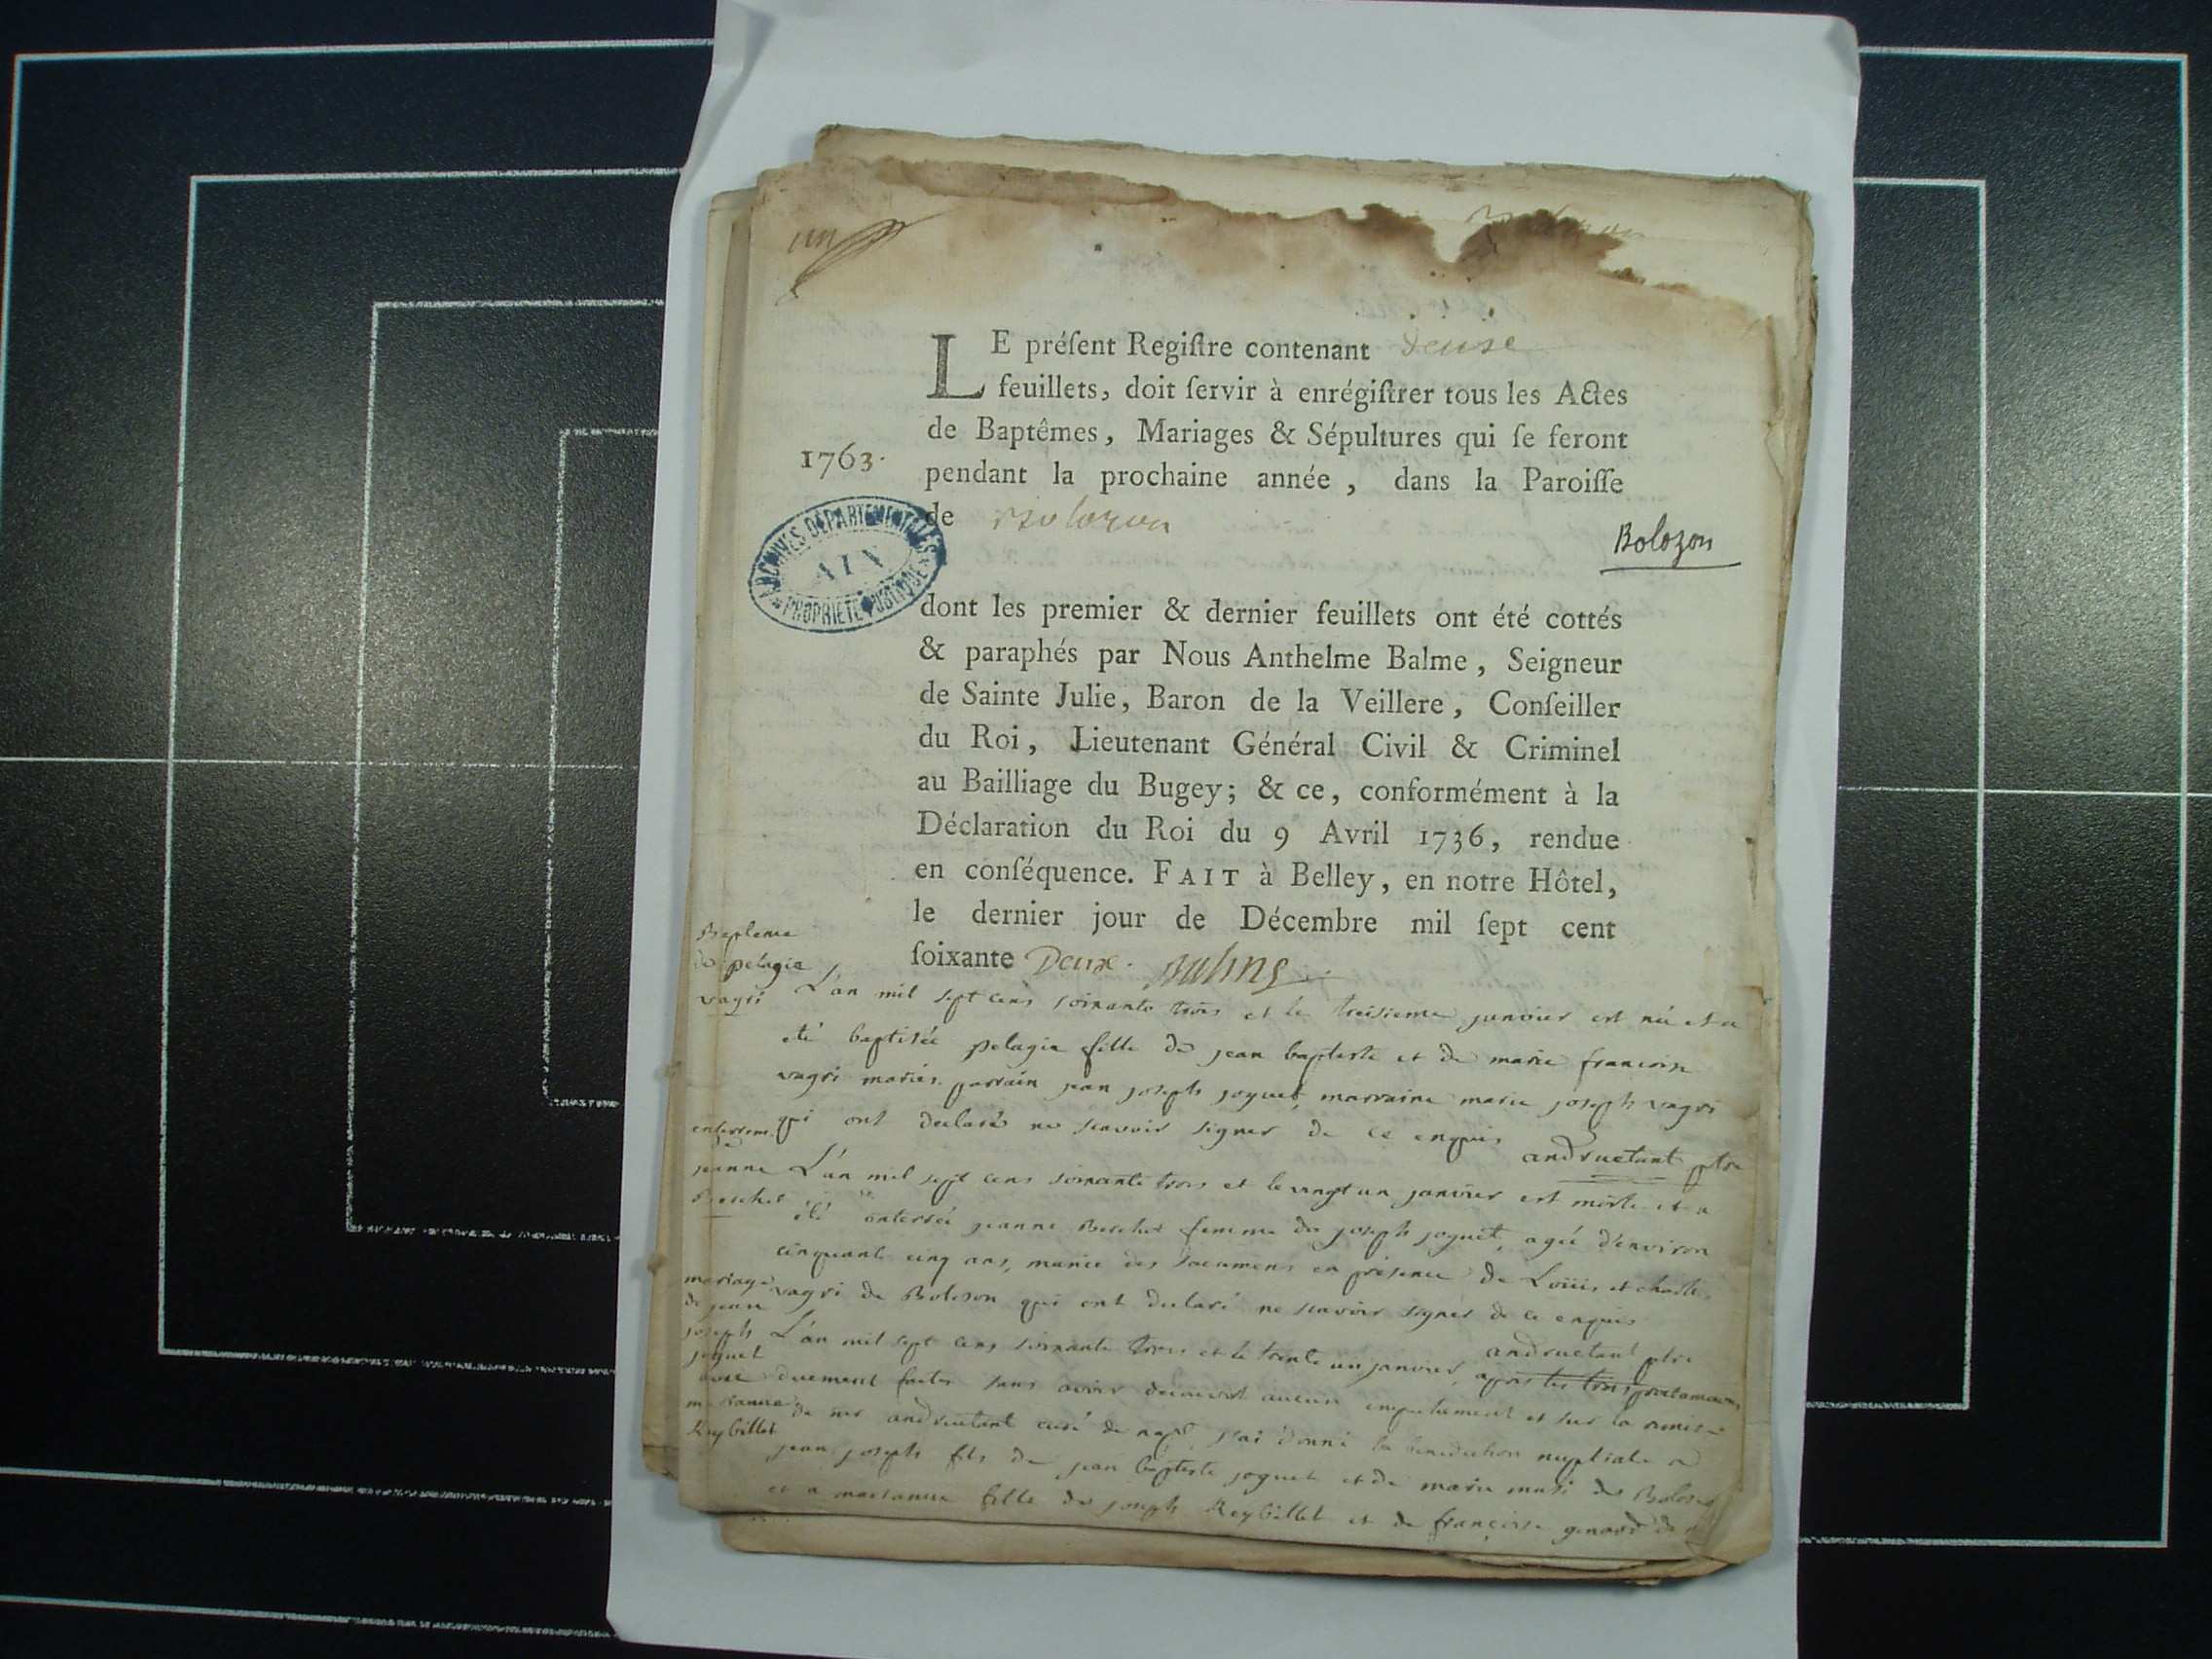 un
LE préſent Regiſtre contenant deuse
feuillets, doit ſervir à enrégiſtrer tous les Actes
de Baptêmes, Mariages & Sépultures qui ſe feront
1763.
pendant la prochaine année, dans la Paroiſſe
de Bolozon
Bolozon
ARCHIVES DÉPARTEMENTALES
AIN
PROPRIÉTÉ PUBLIQUE
dont les premier & dernier feuillets ont été cottés
& paraphés par Nous Anthelme Balme, Seigneur
de Sainte Julie, Baron de la Veillere, Conſeiller
du Roi, Lieutenant Général Civil & Criminel
au Bailliage du Bugey; & ce, conformément à la
Déclaration du Roi du 9 Avril 1736, rendue
en conſéquence. FAIT à Belley, en notre Hôtel,
le dernier jour de Décembre mil ſept cent
ſoixante Deux. Balme
Bapteme
de pelagie
vagri
L'an mil sept cens soixante trois et le treisieme janvier est née et a
eté baptisée pelagie fille de jean baptiste et de marie francoise
vagri mariés. parrain jean joseph joguet, marraine marie joseph vagri
qui ont declaré ne scavoir signer de ce enquis
andruetant ptre
enterrem.
de
jeanne
Berchet
L'an mil sept cens soixante trois et le vingt un janvier est morte et a
été enterrée jeanne Berchet femme de joseph joguet, agée d'environ
cinquante cinq ans, munie des sacremens en présence de Loüis et charles
vagri de Boloson qui ont declaré ne scavoir signer de ce enquis
andruetant ptre
mariage
de jean
joseph
joguet
avec
marianne
Reybillet
L'an mil sept cens soixante trois et le trente un janvier, apres les trois proclamations
duement faites sans avoir decouvert aucun empechement et sur la remise
de mr andruetant curé de j'ai donné la benediction nuptiale a
jean joseph fils de jean baptiste joguet et de marie de Boloson
et a marianne fille de joseph Reybillet et de françoise de